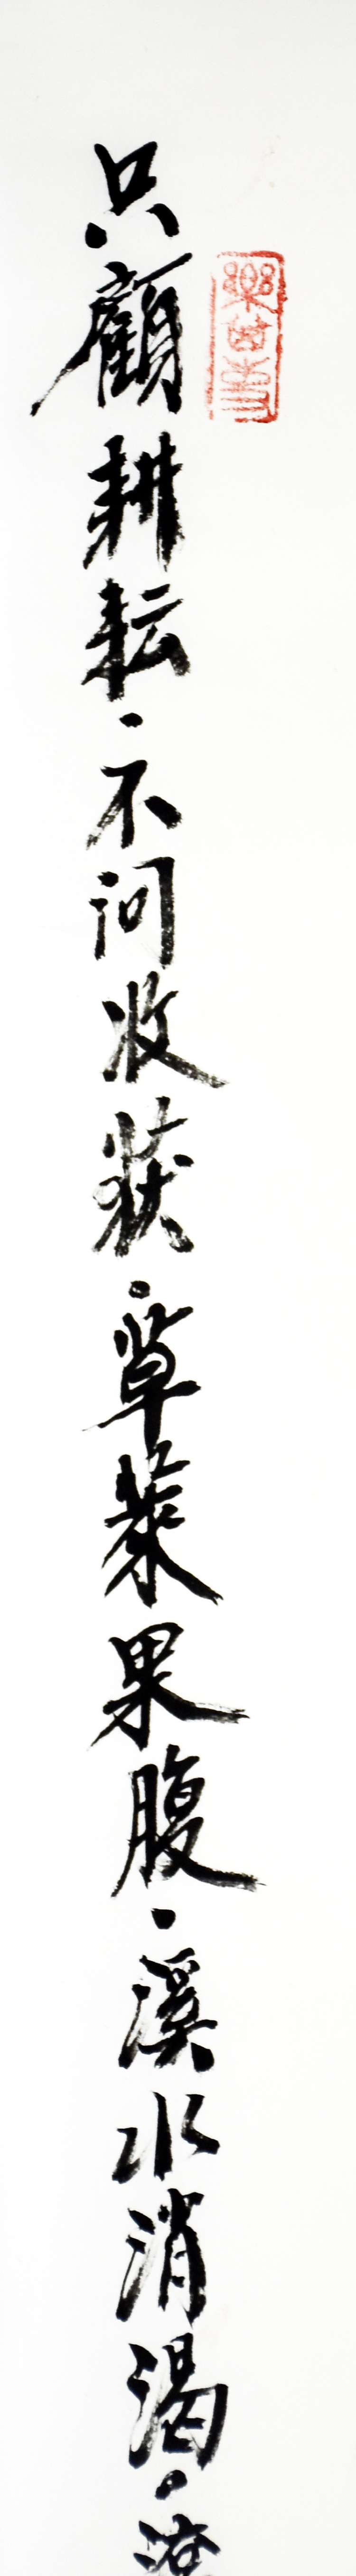 只顧耕耘·不问收获·草菜果腹·溪水消渴·